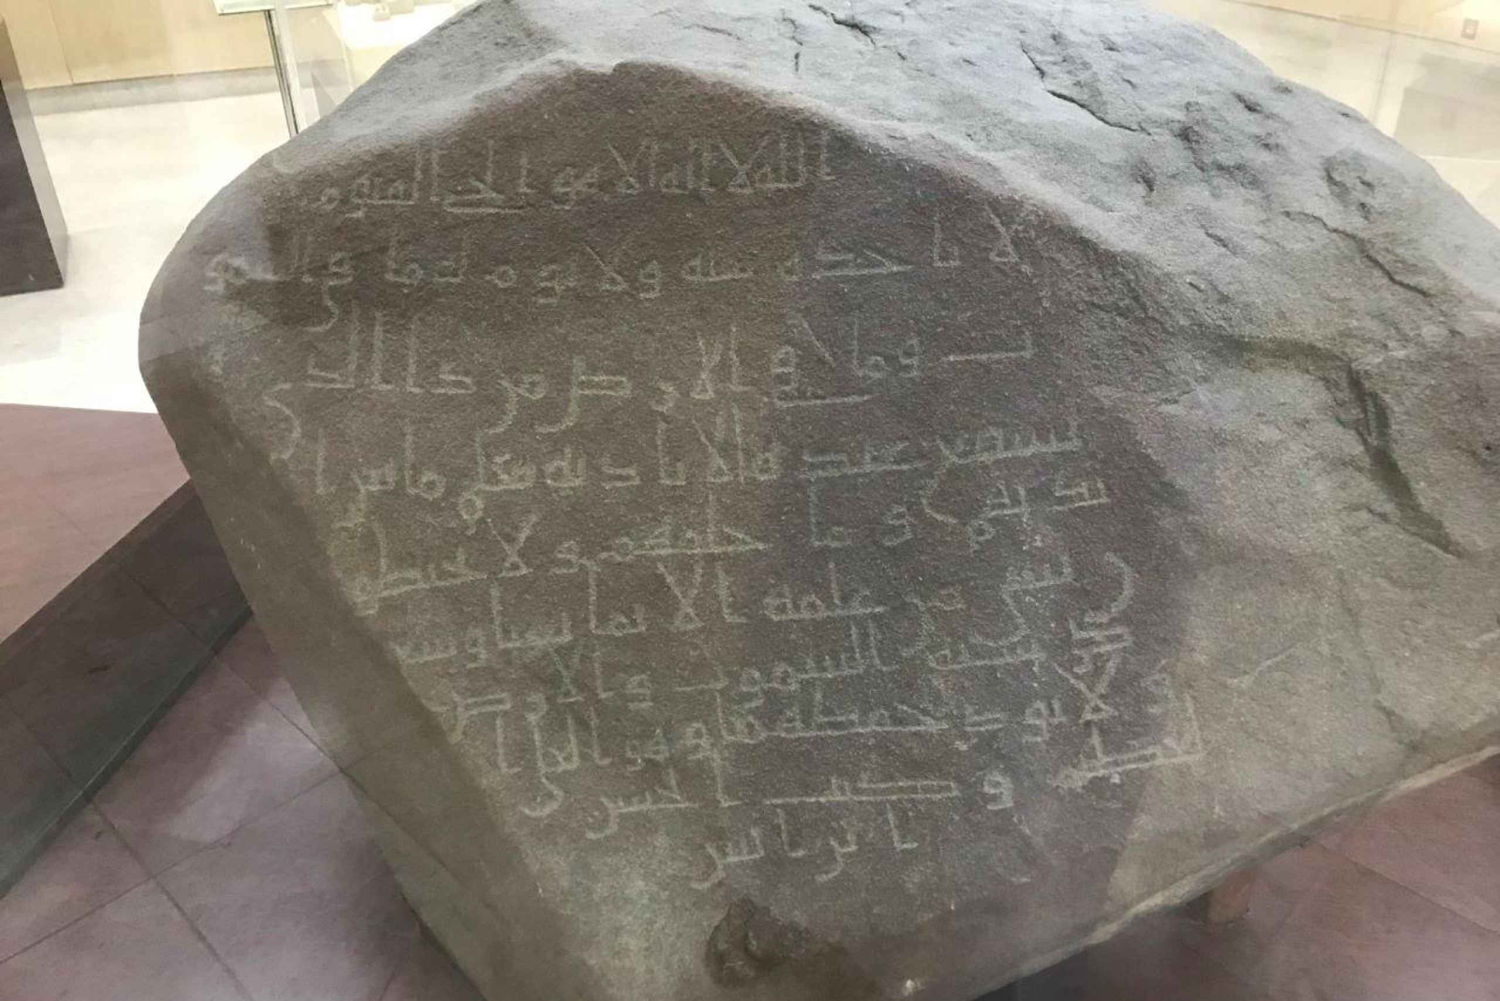 الله لا اله الا هو الحي القيوم
لا تاخذه سنه ولا نوم له ما في السمو
ت وما في الارض من ذا الذي
يشفع عنده الا باذنه يعلم ما بين ا
يديهم وما خلفهم ولا يحيطو
ن بشي من علمه الا بما شا وسع
كرسيه السموت والارض
ولا يود حفظهما وهو العلي ا
لعظيم وكتب الحسن
ابن